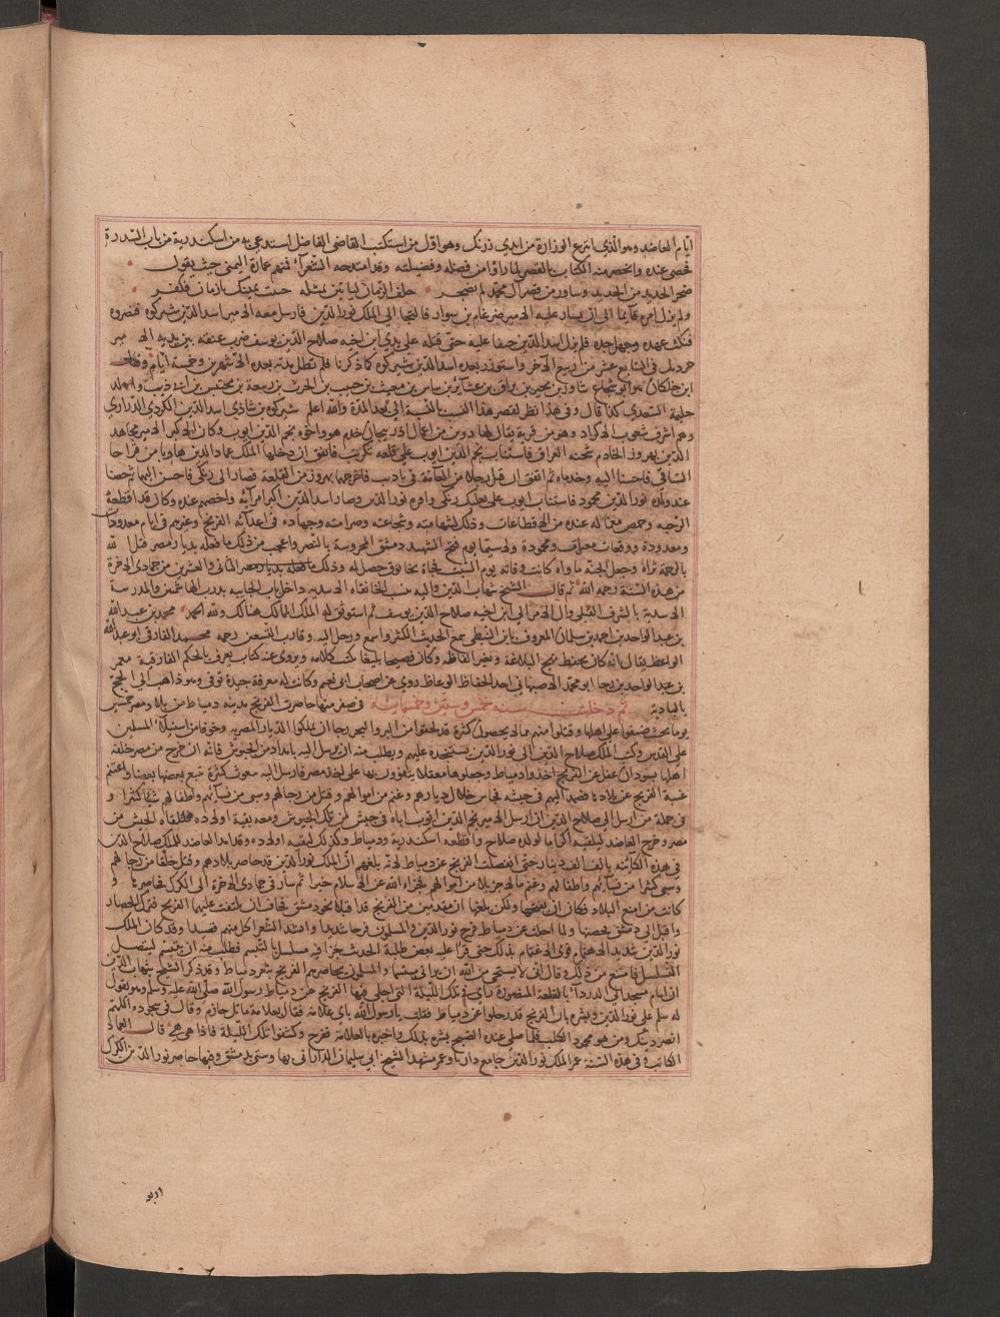 ايام العاضد وهو الذي انتزع الوزارة من ايدي رزيك وهو اول من استكتب القاضي الفاضل استدعي به من اسكندرية من باب السدرة
فحصي عنده وانحصر منه الكتاب بالقصر لما راوا من فضله وفضيلته وقد امتدحه الشعراء منهم عمارة اليمني حيث يقول
ضجر الحديد من الحديد وشاور من نصر ال محمد لم يضجر حلف الزمان لياتين بمثله حنثت يمينك يا زمان فكفر
ولم يزل امره قايما الى ان ثار عليه الامير ضرغام بن سوار فالتجا الى الملك نور الدين فارسل معه الامير اسد الدين شيركوه فنصروه
فنكث عهده فلم يزل اسد الدين حنقا عليه حتى قتله على يدي ابن اخيه صلاح الدين يوسف ضرب عنقه بين يديه الامير
جرديك في السابع عشر من ربيع الاخر واستوزر بعده اسد الدين شيركوه كما ذكرنا فلم تطل مدته بعده الا شهرين وخمسة ايام وقال
ابن خلكان هو ابو شجاع شاور بن مجير بن نزار بن عشائر بن شاس بن مغيث بن حبيب بن الحرث بن ربيعة بن مخيس بن ابي ذويب والد
حليمة السعدية كذا قال وفي هذا نظر لقصر هذا النسب بالنسبة الى بعد المدة والله اعلم شيركوه بن شاذي اسد الدين الكردي الزرزاري
وهم اشرف شعوب الاكراد وهو من قرية يقال لها دوين من اعمال اذربيجان خدم هو واخوه نجم الدين ايوب وكان الاكبر الامير مجاهد
الدين بهروز الخادم شحنه العراق فاستناب نجم الدين ايوب على قلعة تكريت فاتفق ان دخلها الملك عماد الدين هاربا من قراجا
الساقي فاحسنا اليه وخدماه ثم اتفق ان قتل رجلا من العامة فاخرجهما بهروز من القلعة فصارا الى زنكي فاحسن اليهما ثم حظيا
عند ولده نور الدين محمود فاستناب ايوب على بعلبك واقره نور الدين وصار اسد الدين اكبر امرائه واخصهم عنده وكان قد اقطعه
الرحبه وحمص مع ماله عنده من الاقطاعات وذلك لشهامته وشجاعته وصرامته وجهاده في اعدائه الفرنج وغيرهم في ايام معدودات
ومعدودة ووقعات معروفة ومحمودة ولا سيما يوم فتح دمشق المحروسة بالنصر واعجب من ذلك ما فعله بديار مصر فبل الله
بالرحمة ثراه وجعل الجنة ماواه كانت وفاته يوم السبت فجاة بخانوق حصل له وذلك الثاني والعشرين من جمادى الاخرة
من هذه السنة رحمه الله ثم قال الشيخ شهاب الدين واليه تنسب الخانقاه الاسديه داخل باب الجابيه بدرب الهاشميين والمدرسة
الاسدية بالشرف القبلي وال الامر الى ابن اخيه صلاح الدين يوسف ثم استوثق له الملك والممالك هنالك ولله الحمد محمد بن عبدالله
بن عبدالواحد بن احمد بن سلمان المعروف بابن البطي سمع الحديث الكثير واسمع ورحل اليه وقارب التسعين رحمه محمد الفارقي ابو عبدالله
الواعظ يقال انه كان يحفظ نهج البلاغة ويغير الفاظه وكان فصيحا بليغا كتب كلامه ويروى عنه كتاب يعرف بالحكم الفارقية معمر
بن عبدالواحد بن رجا ابو محمد الاصبهاني احد الحفاظ الوعاظ روى عن اصحاب ابي نعيم وكانت له معرفة جيدة توفي وهو ذاهب الى الحج
بالبادية ثم دخلت سنه خمس وستين وخمسمايه في صفر منها حاصرت الفرنج مدينه دمياط من بلاد مصر خمسين
يوما بحيث ضيقوا على اهلها وقتلوا امما لا يحصون كثرة قد لحقوا من البر والبحر رجا ان يملكوا الديار المصريه وخوفا من استيلا المسلمين
على القدس وكتب الملك صلاح الدين الى نور الدين يستنجده عليهم ويطلب منه ان يرسل اليه بامداد من الجيوش فانه ان خرج من مصر خلفه
اهلها بسوء وان غفل عن الفرنج اخذوا دمياط وجعلوها معقلا يتقوون بها على اخذ مصر فارسل اليه بعوث كثيرة تتبع بعضها بعضا واغتنم
غيبة الفرنج عن بلادها فصمد اليهم في جيشه فجاس خلال ديارهم وغنم من اموالهم وقتل من رجالهم وسبى من نسايهم واطفالهم شيا كثيرا و
في جملة من ارسل الى صلاح الدين ان ارسل الامير نجم الدين ايوب اباه في جيش من تلك الجيوش ومعه بقية اولاده فتلقاه الجيش من
مصر وخرج العاضد لتلقيه اكراما لولده صلاح واقطعه اسكندرية ودمياط وكذلك لبقيه اولاده وقد امد العاضد للملك صلاح الدين
في هذه الكائنه بالف الف دينار حتى انفصلت الفرنج عن دمياط لانه بلغهم ان الملك نور الدين قد حاصر بلادهم وقتل خلقا من رجالهم
وسبى كثيرا من نسائهم واطفالهم وغنم مالا جزيلا من اموالهم فجزاه الله عن الاسلام خيرا ثم سار في جمادى الاخرة الى الكرك فحاصرها و
كانت من امنع البلاد فكان ان يفتحها ولكن بلغه ان مقدمين من الفرنج قد اقبلا نحو دمشق فخاف ان يلتفت عليهما الفرنج فترك الحصار
واقبل الى دمشق فحصنها ولما اجلت عن دمياط فرح نور الدين والمسلمون فرحا شديدا وانشد الشعرا كل منهم قصيدا وقد كان الملك
نور الدين شديد الاهتمام قوي الاغتمام بذلك حتى قرا عليه بعض طلبة الحديث جزا فيه مسلسل بالتبسم فطلب منه ان يتبسم ليتصل
التسلسل فامتنع من ذلك وقال اني لاستحي من الله ان يراني متبسما والمسلمون يحاصرهم الفرنج بثغر دمياط وقد ذكر الشيخ شهاب الدين
ان امام مسجد ابي الدرداء بالقلعة المنصورة راى في تلك الليلة التي اجلي فيها الفرنج عن دمياط رسول الله صلى الله عليه وسلم وهو يقول
له سلم على نور الدين وبشره بان الفرنج قد رحلوا عن دمياط فقلت يا رسول الله باي علامة فقال بعلامة ما تل حارم وقال في سجوده اللهم
انصر دينك ومن هو محمود الكلب فلما صلى عنده الصبح بشره بذلك واخبره بالعلامة ففرح وكشفوا تلك الليلة فاذا هي هي قال العماد
الكاتب وفي هذه السنة عمر الملك نور الدين جامع داريا وعمر مشهد الشيخ ابي سليمان الداراني بها وشتى بدمشق وفيها حاصر نور الدين الكرك